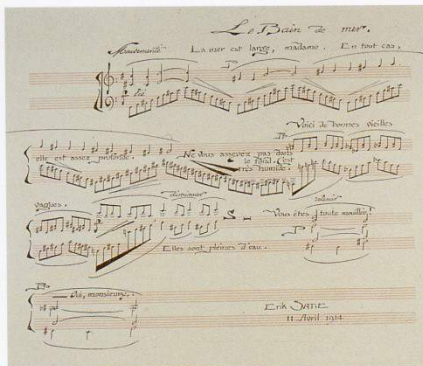 Le Bain de mer.
Mouvementé La mer est large, madame. En tout cas,
elle est assez profonde. Ne vous asseyez pas dans le fond. C'est très humide. Voici de bonnes vieilles
vagues. Elles sont pleines d'eau. Vous êtes toute mouillée!
Oui, monsieur.
Erik SATIE
11 Avril 1914